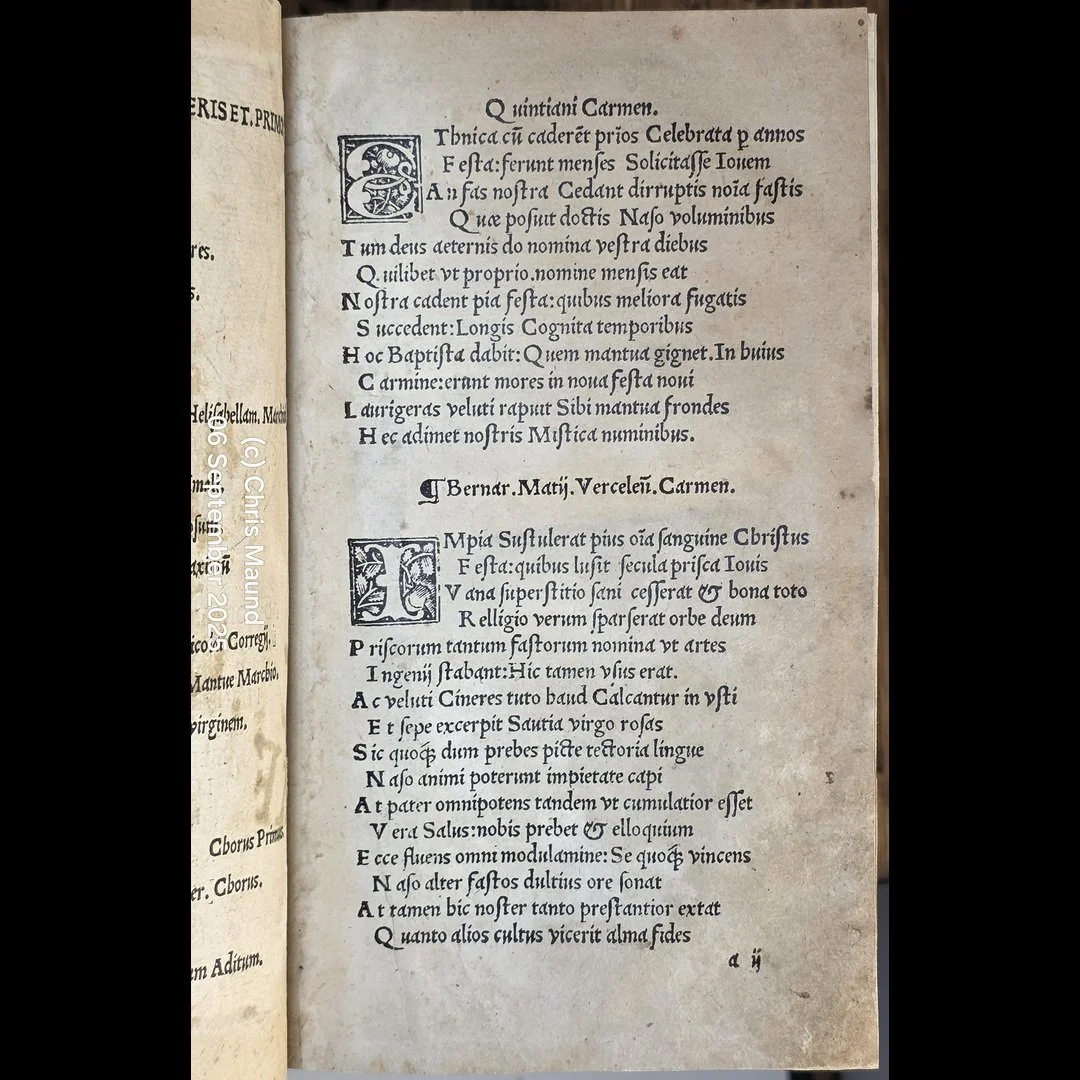 ERIS ET. PRIMO
res.
s.
Helisabellam. March
Corregij.
Mantue Marchio.
virginem.
Chorus Primus
er. Chorus.
em Aditum.
Quintiani Carmen.
EThnica cū caderēt prīos Celebrata ꝑ annos
Festa:ferunt menses Solicitasse Iouem
An fas nostra Cedant dirruptis noīa fastis
Quæ posuit doctis Naso voluminibus
Tum deus aeternis do nomina vestra diebus
Quilibet vt proprio.nomine mensis eat
Nostra cadent pia festa:quibus meliora fugatis
Succedent:Longis Cognita temporibus
Hoc Baptista dabit:Quem mantua gignet.In huius
Carmine:erunt mores in noua festa noui
Laurigeras veluti rapuit Sibi mantua frondes
Hec adimet nostris Mistica numinibus.
¶ Bernar.Matij.Verceleñ.Carmen.
IMpia Sustulerat pius oīa sanguine Christus
Festa:quibus lusit secula prisca Iouis
Vana superstitio sani cesserat & bona toto
Relligio verum sparserat orbe deum
Priscorum tantum fastorum nomina vt artes
Ingenij stabant:Hic tamen vsus erat.
Ac veluti Cineres tuto haud Calcantur in vsti
Et sepe excerpit Sautia virgo rosas
Sic quoqꝫ dum prebes picte tectoria lingue
Naso animi poterunt impietate capi
At pater omnipotens tandem vt cumulatior esset
Vera Salus:nobis prebet & elloquium
Ecce fluens omni modulamine:Se quoqꝫ vincens
Naso alter fastos dultius ore sonat
At tamen hic noster tanto prestantior extat
Quanto alios cultus vicerit alma fides
a ij
(c) Chris Maund
06 September 2025